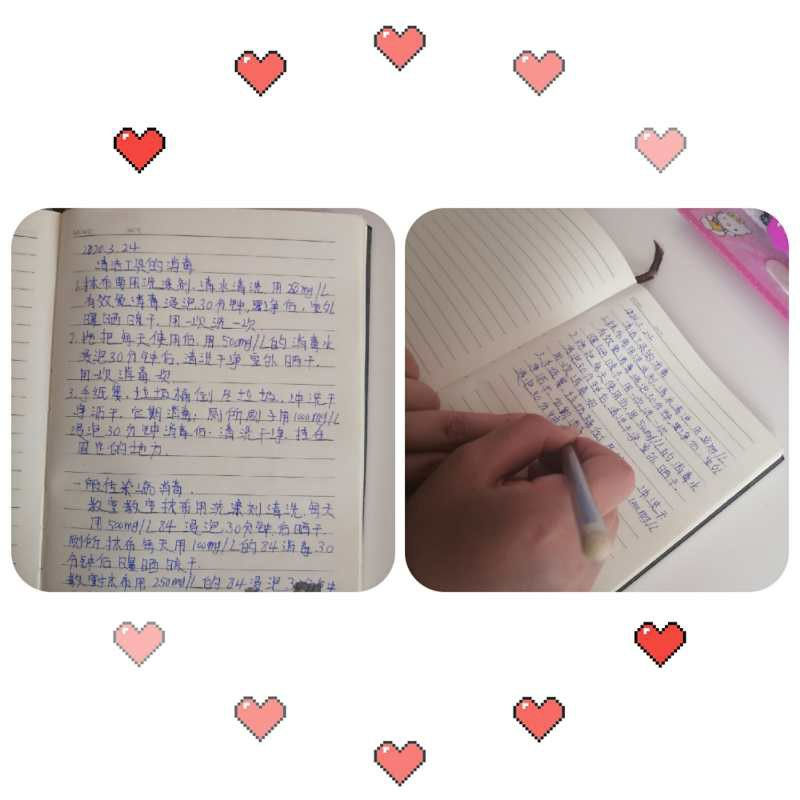 2020.3.24
清洗工具的消毒
1.抹布要用洗涤剂,清水清洗用250mg/L
有效氯消毒浸泡30分钟,置净后,室外
曝晒晾干,用一次洗一次
2.拖把每天使用后,用500mg/L的消毒水
浸泡30分钟后,清洗干净室外晒干.
用一次消毒一次.
3.手纸篓,垃圾桶倒尽垃圾,冲洗干
净沥干,定期消毒,厕所刷子用1000mg/L
浸泡30分钟消毒后,清洗干净,挂在
固定的地方.
一般传染病消毒.
教室教室抹布用洗涤剂清洗,每天
用500mg/L84浸泡30分钟后晒干
厕所抹布每天用1000mg/L的84消毒30
分钟后曝晒晾干.
抹布用250mg/L的84浸泡30分钟